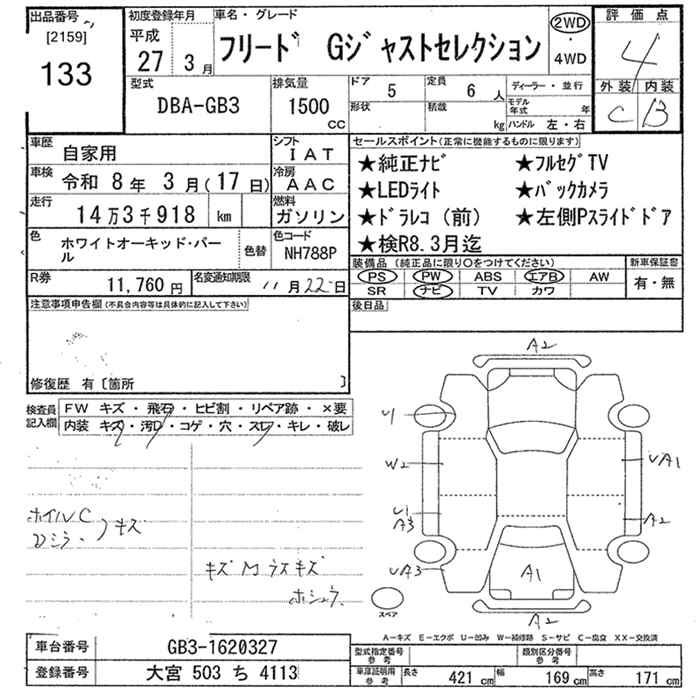 出品番号
[2159]
133
初度登録年月
平成
27 3月
車名・グレード
フリード Gジャストセレクション
2WD
・
4WD
評価点
4
外装 内装
C B
型式
DBA-GB3
排気量
1500
CC
ドア
5
定員
6人
ディーラー・並行
形状
積載
kg
モデル年式
年
ハンドル 左・右
車歴
自家用
シフト
IAT
車検
令和 8年 3月(17日)
冷房
AAC
走行
14万3千918 km
燃料
ガソリン
色
ホワイトオーキッド・パール
色替
色コード
NH788P
R券
11,760円
名変通知期限
11月22日
セールスポイント(正常に機能するものに限ります)
★純正ナビ ★フルセグTV
★LEDライト ★バックカメラ
★ドラレコ(前) ★左側Pスライドドア
★検R8.3月迄
装備品(純正品に限り○をつけてください)
新車保証書
PS PW ABS エアB AW
SR ナビ TV カワ
有・無
後日品
注意事項申告欄(不具合内容等は具体的に記入して下さい)
修復歴 有〔箇所 〕
検査員記入欄
FW キズ・飛石・ヒビ割・リペア跡・×要
内装 キズ・汚レ・コゲ・穴・スレ・キレ・破レ
ホイルC
Dミラー
キズ
キズ
キズ
ホシュウ
A2
U
W2
UA1
U1
A3
A2
UA3
A1
スペア
A2
A-キズ E-エクボ U-凹み W-補修跡 S-サビ C-腐食 XX-交換済
車台番号
GB3-1620327
登録番号
大宮 503 ち 4113
型式指定番号
参考
類別区分番号
参考
車庫証明用
参考
長さ
421 cm
幅
169 cm
高さ
171 cm